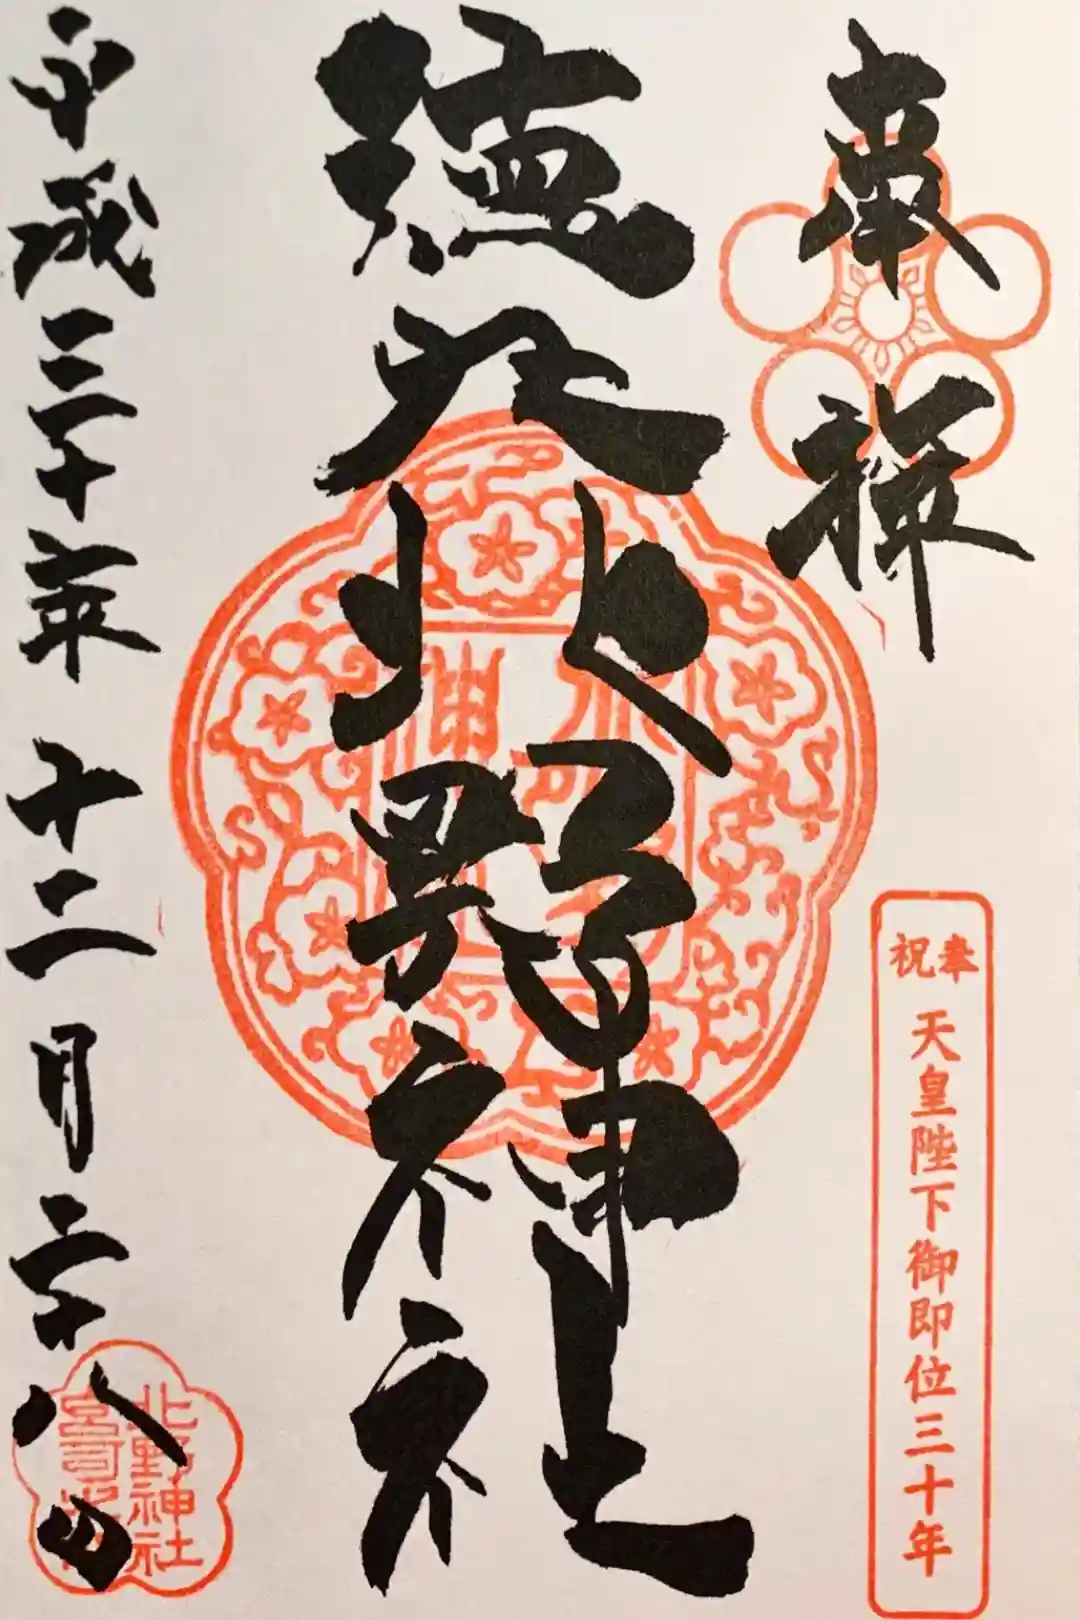 奉拝
奉祝 天皇陛下御即位三十年
徳丸北野神社
平成三十年十二月二十八日
北野神社
宮司之印